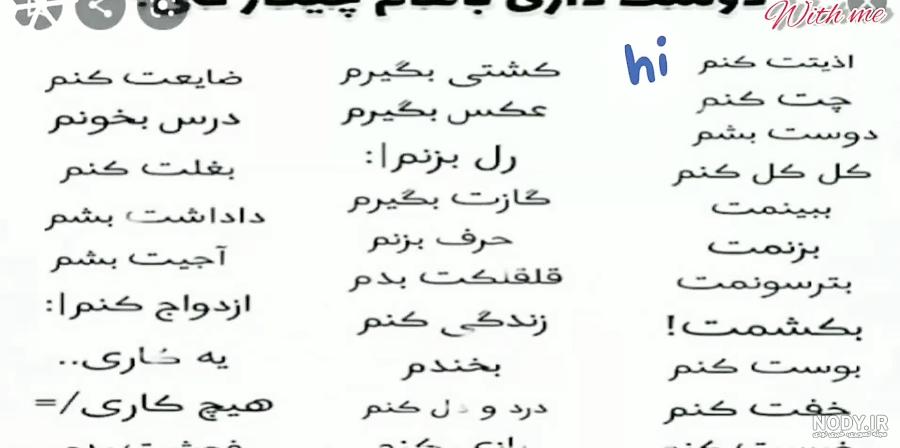 With me
hi
اذیتت کنم
چت کنم
دوست بشم
کل کل کنم
ببینمت
بزنمت
بترسونمت
بکشمت!
بوست کنم
خفت کنم
کشتی بگیرم
عکس بگیرم
رل بزنم|:
گازت بگیرم
حرف بزنم
قلقلکت بدم
زندگی کنم
بخندم
درد و دل کنم
ضایعت کنم
درس بخونم
بغلت کنم
داداشت بشم
آجیت بشم
ازدواج کنم|:
یه کاری..
هیچ کاری/=
NODY.IR